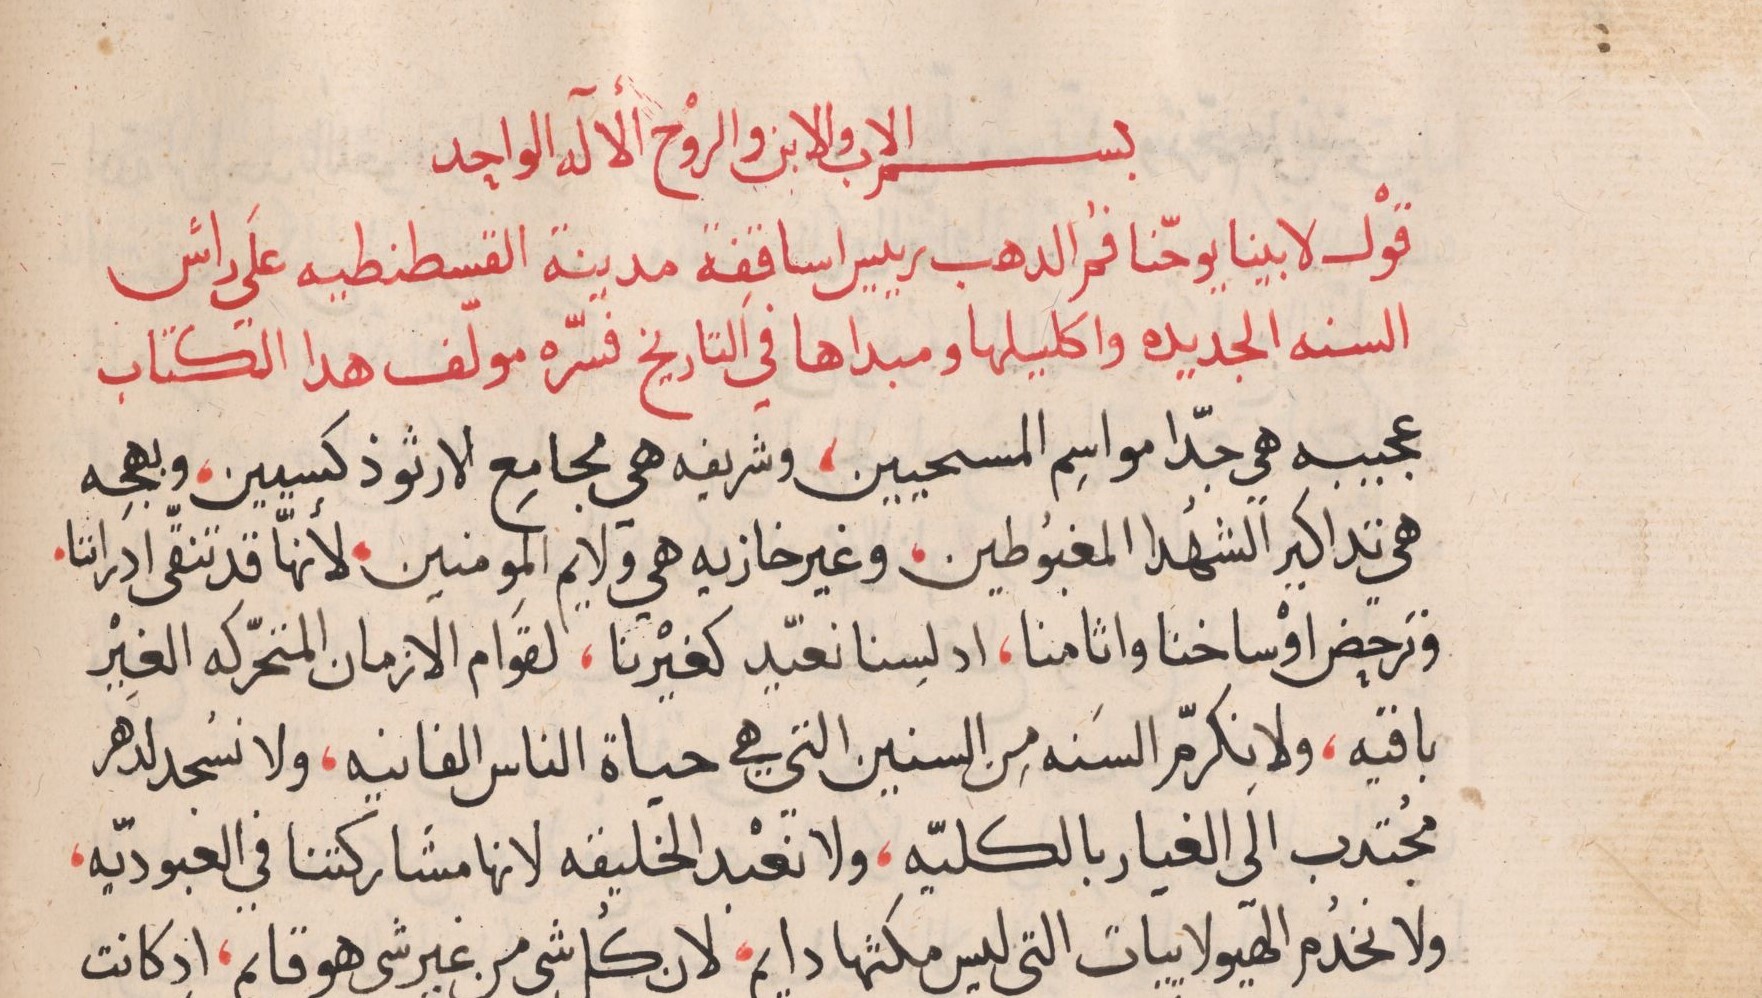 بسم الاب والابن والروْح ألالآه الواحد
قوْل لابينا يوحّنا فم الدهب رييس اساقفة مدينة القسطنطيه علَي رائس
السنه الجديده واكليلها ومبداها في التاريخ فسّره مولّف هدا الكتاب
عجيبه هي جدّا مواسِم المسحيين، وشريفه هي مجامِع الارثوذكسيين، وبهجِه
هي تداكير الشهُدا المغبُوطين، وغير خازيه هي ولايم المومنين، لأنهّا قد تنقّي ادراننا،
وترحِض اوْساخنا واثامنا، اد لسِنا نعيّد كغيْرنا، لقوَام الازمان المتحرّكه الغيْر
باقيه، ولا نكرمّ السَنه مِن السنين التي هي حياة الناس الفانيه، ولا نسُجد لدهر
مجُتدب الَي الغيار بالكليّه، ولا نعْبد الخليقه لانها مشاركتنا في العبوديّه،
ولا نخدُم الهيولاييات التي ليس مكثها دايم، لان كلُ شي من غير شي هو قايم، اد كانت